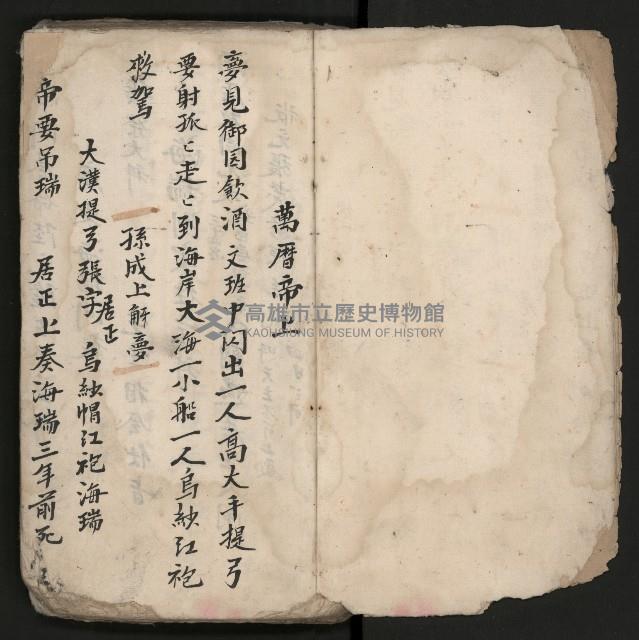 萬曆帝上
夢見御园飲酒文班中闪出一人高大手提弓
要射孤〻走〻到海岸大海一小船一人烏紗红袍
救駕 孫成上觧夢
大漢提弓張字居正 烏紗帽红袍海瑞
帝要吊瑞 居正上奏海瑞三年前死
高雄市立歷史博物館
KAOHSIUNG MUSEUM OF HISTORY